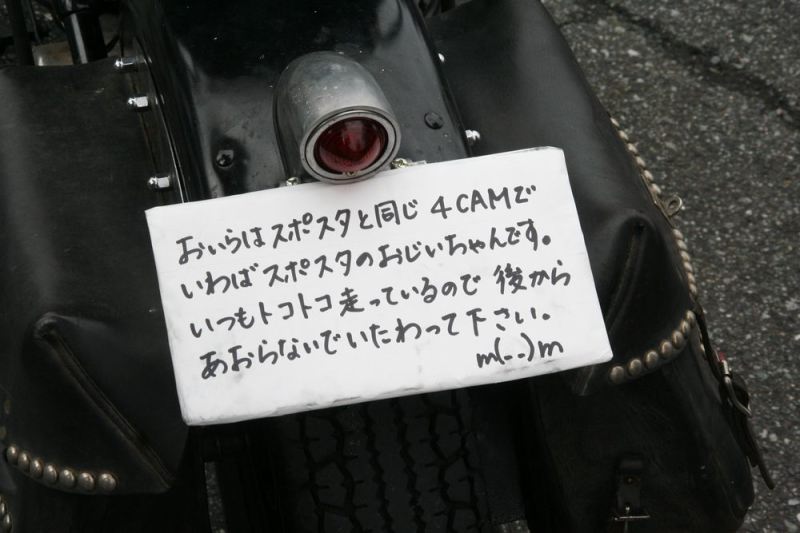 おいらはスポスタと同じ 4CAMで
いわばスポスタのおじいちゃんです。
いつもトコトコ走っているので 後から
あおらないでいたわって下さい。
m(--)m